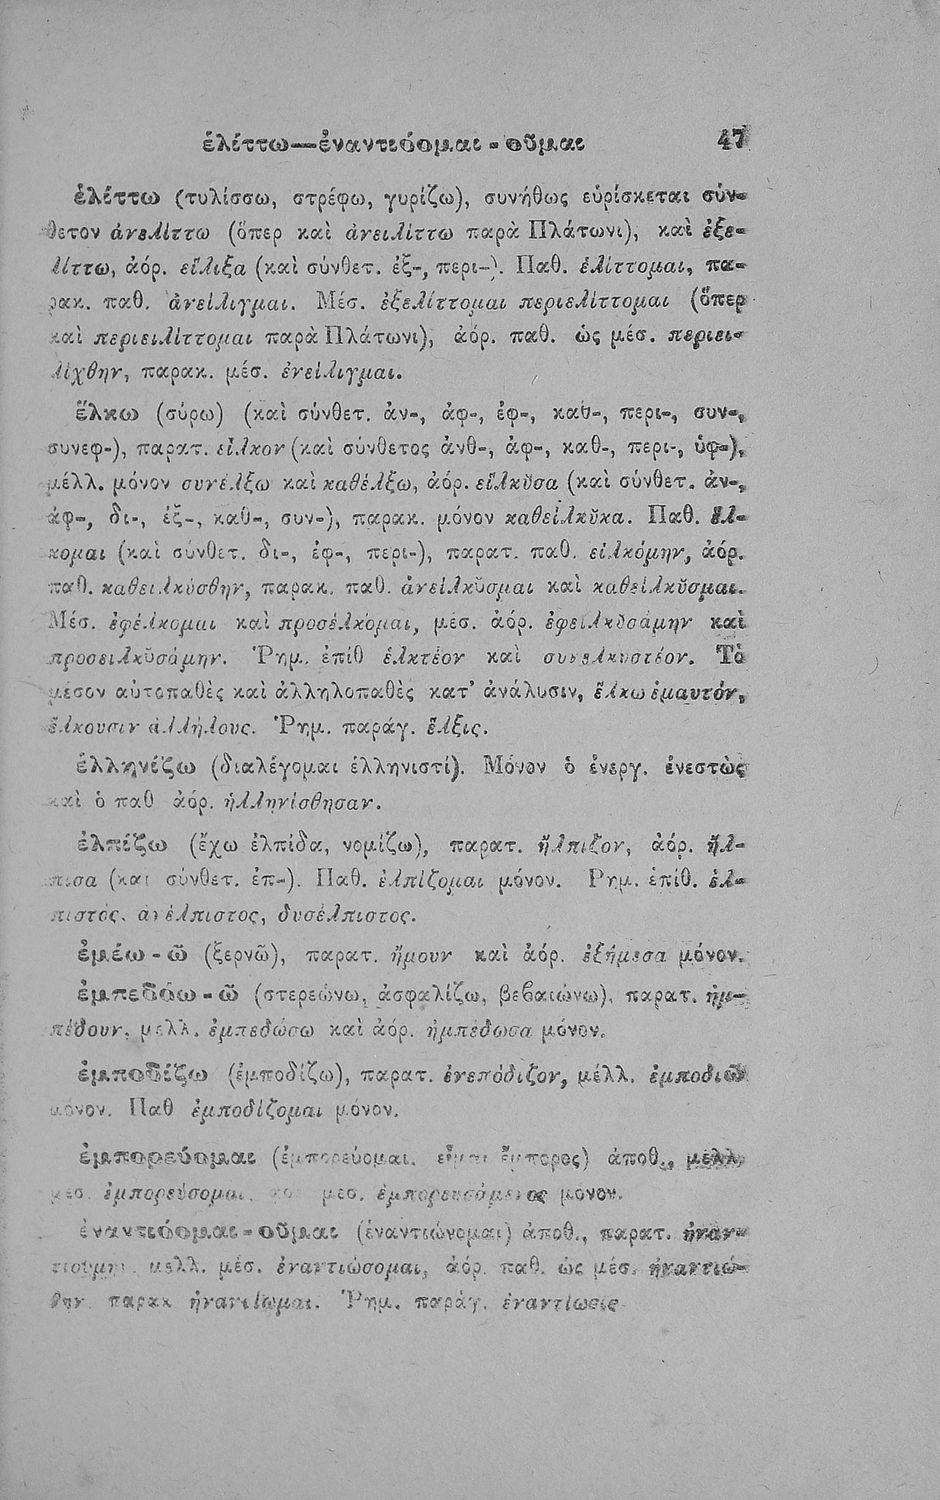 ἑλίττω—ἐναντιόομαι - οῦμαι 47
ἑλίττω (τυλίσσω, στρέφω, γυρίζω), συνήθως εὑρίσκεται σύν-
θετον ἀνελίττω (ὅπερ καὶ ἀνειλίττω παρὰ Πλάτωνι), καὶ ἐξε-
λίττω, ἀόρ. εἵλιξα (καὶ σύνθετ. ἐξ-, περι-). Παθ. ἑλίττομαι, πα-
ρακ. παθ. ἀνείλιγμαι. Μέσ. ἐξελίττομαι περιελίττομαι (ὅπερ
καὶ περιειλίττομαι παρὰ Πλάτωνι), ἀόρ. παθ. ὡς μέσ. περιει-
λίχθην, παρακ. μέσ. ἐνείλιγμαι.
ἕλκω (σύρω) (καὶ σύνθετ. ἀν-, ἀφ-, ἐφ-, καθ-, περι-, συν-,
συνεφ-), παρατ. εἷλκον (καὶ σύνθετος ἀνθ-, ἀφ-, καθ-, περι-, ὑφ-),
μέλλ. μόνον συνέλξω καὶ καθέλξω, ἀόρ. εἵλκῦσα (καὶ σύνθετ. ἀν-,
ἀφ-, δι-, ἐξ-, καθ-, συν-), παρακ. μόνον καθείλκῦκα. Παθ. ἕλ-
κομαι (καὶ σύνθετ. δι-, ἐφ-, περι-), παρατ. παθ. εἱλκόμην, ἀόρ.
παθ. καθειλκύσθην, παρακ. παθ. ἀνείλκῦσμαι καὶ καθείλκῦσμαι.
Μέσ. ἐφέλκομαι καὶ προσέλκομαι, μέσ. ἀόρ. ἐφειλκῦσάμην καὶ
προσειλκῦσάμην. Ῥημ. ἐπίθ ἑλκτέον καὶ συνελκυστέον. Τὸ
μέσον αὐτοπαθὲς καὶ ἀλληλοπαθὲς κατ' ἀνάλυσιν, ἕλκω ἐμαυτόν,
ἕλκουσιν ἀλλήλους. Ῥημ. παράγ. ἕλξις.
ἑλληνίζω (διαλέγομαι ἑλληνιστί). Μόνον ὁ ἐνεργ. ἐνεστὼς
καὶ ὁ παθ ἀόρ. ἡλληνίσθησαν.
ἐλπίζω (ἔχω ἐλπίδα, νομίζω), παρατ. ἤλπιζον, ἀόρ. ἤλ-
πισα (καὶ σύνθετ. ἐπ-). Παθ. ἐλπίζομαι μόνον. Ρημ. ἐπίθ. ἐλ-
πιστός, ἀνέλπιστος, δυσέλπιστος.
ἐμέω - ῶ (ξερνῶ), παρατ. ἤμουν καὶ ἀόρ. ἐξήμεσα μόνον.
ἐμπεδόω - ῶ (στερεώνω, ἀσφαλίζω, βεβαιώνω), παρατ. ἠμ-
πέδουν, μελλ. ἐμπεδώσω καὶ ἀόρ. ἠμπέδωσα μόνον.
ἐμποδίζω (ἐμποδίζω), παρατ. ἐνεπόδιζον, μέλλ. ἐμποδιῶ
μόνον. Παθ ἐμποδίζομαι μόνον.
ἐμπορεύομαι (ἐμπορεύομαι, εἶμαι ἔμπορος) ἀποθ., μέλλ.
μέσ. ἐμπορεύσομαι, μεσ. ἐμπορευσάμενος μόνον.
ἐναντιόομαι - οῦμαι (ἐναντιώνομαι) ἀποθ., παρατ. ἠναν-
τιούμην, μελλ. μέσ. ἐναντιώσομαι, ἀόρ. παθ. ὡς μέσ. ἠναντιώ-
θην παρακ ἠναντίωμαι. Ῥημ. παράγ. ἐναντίωσις